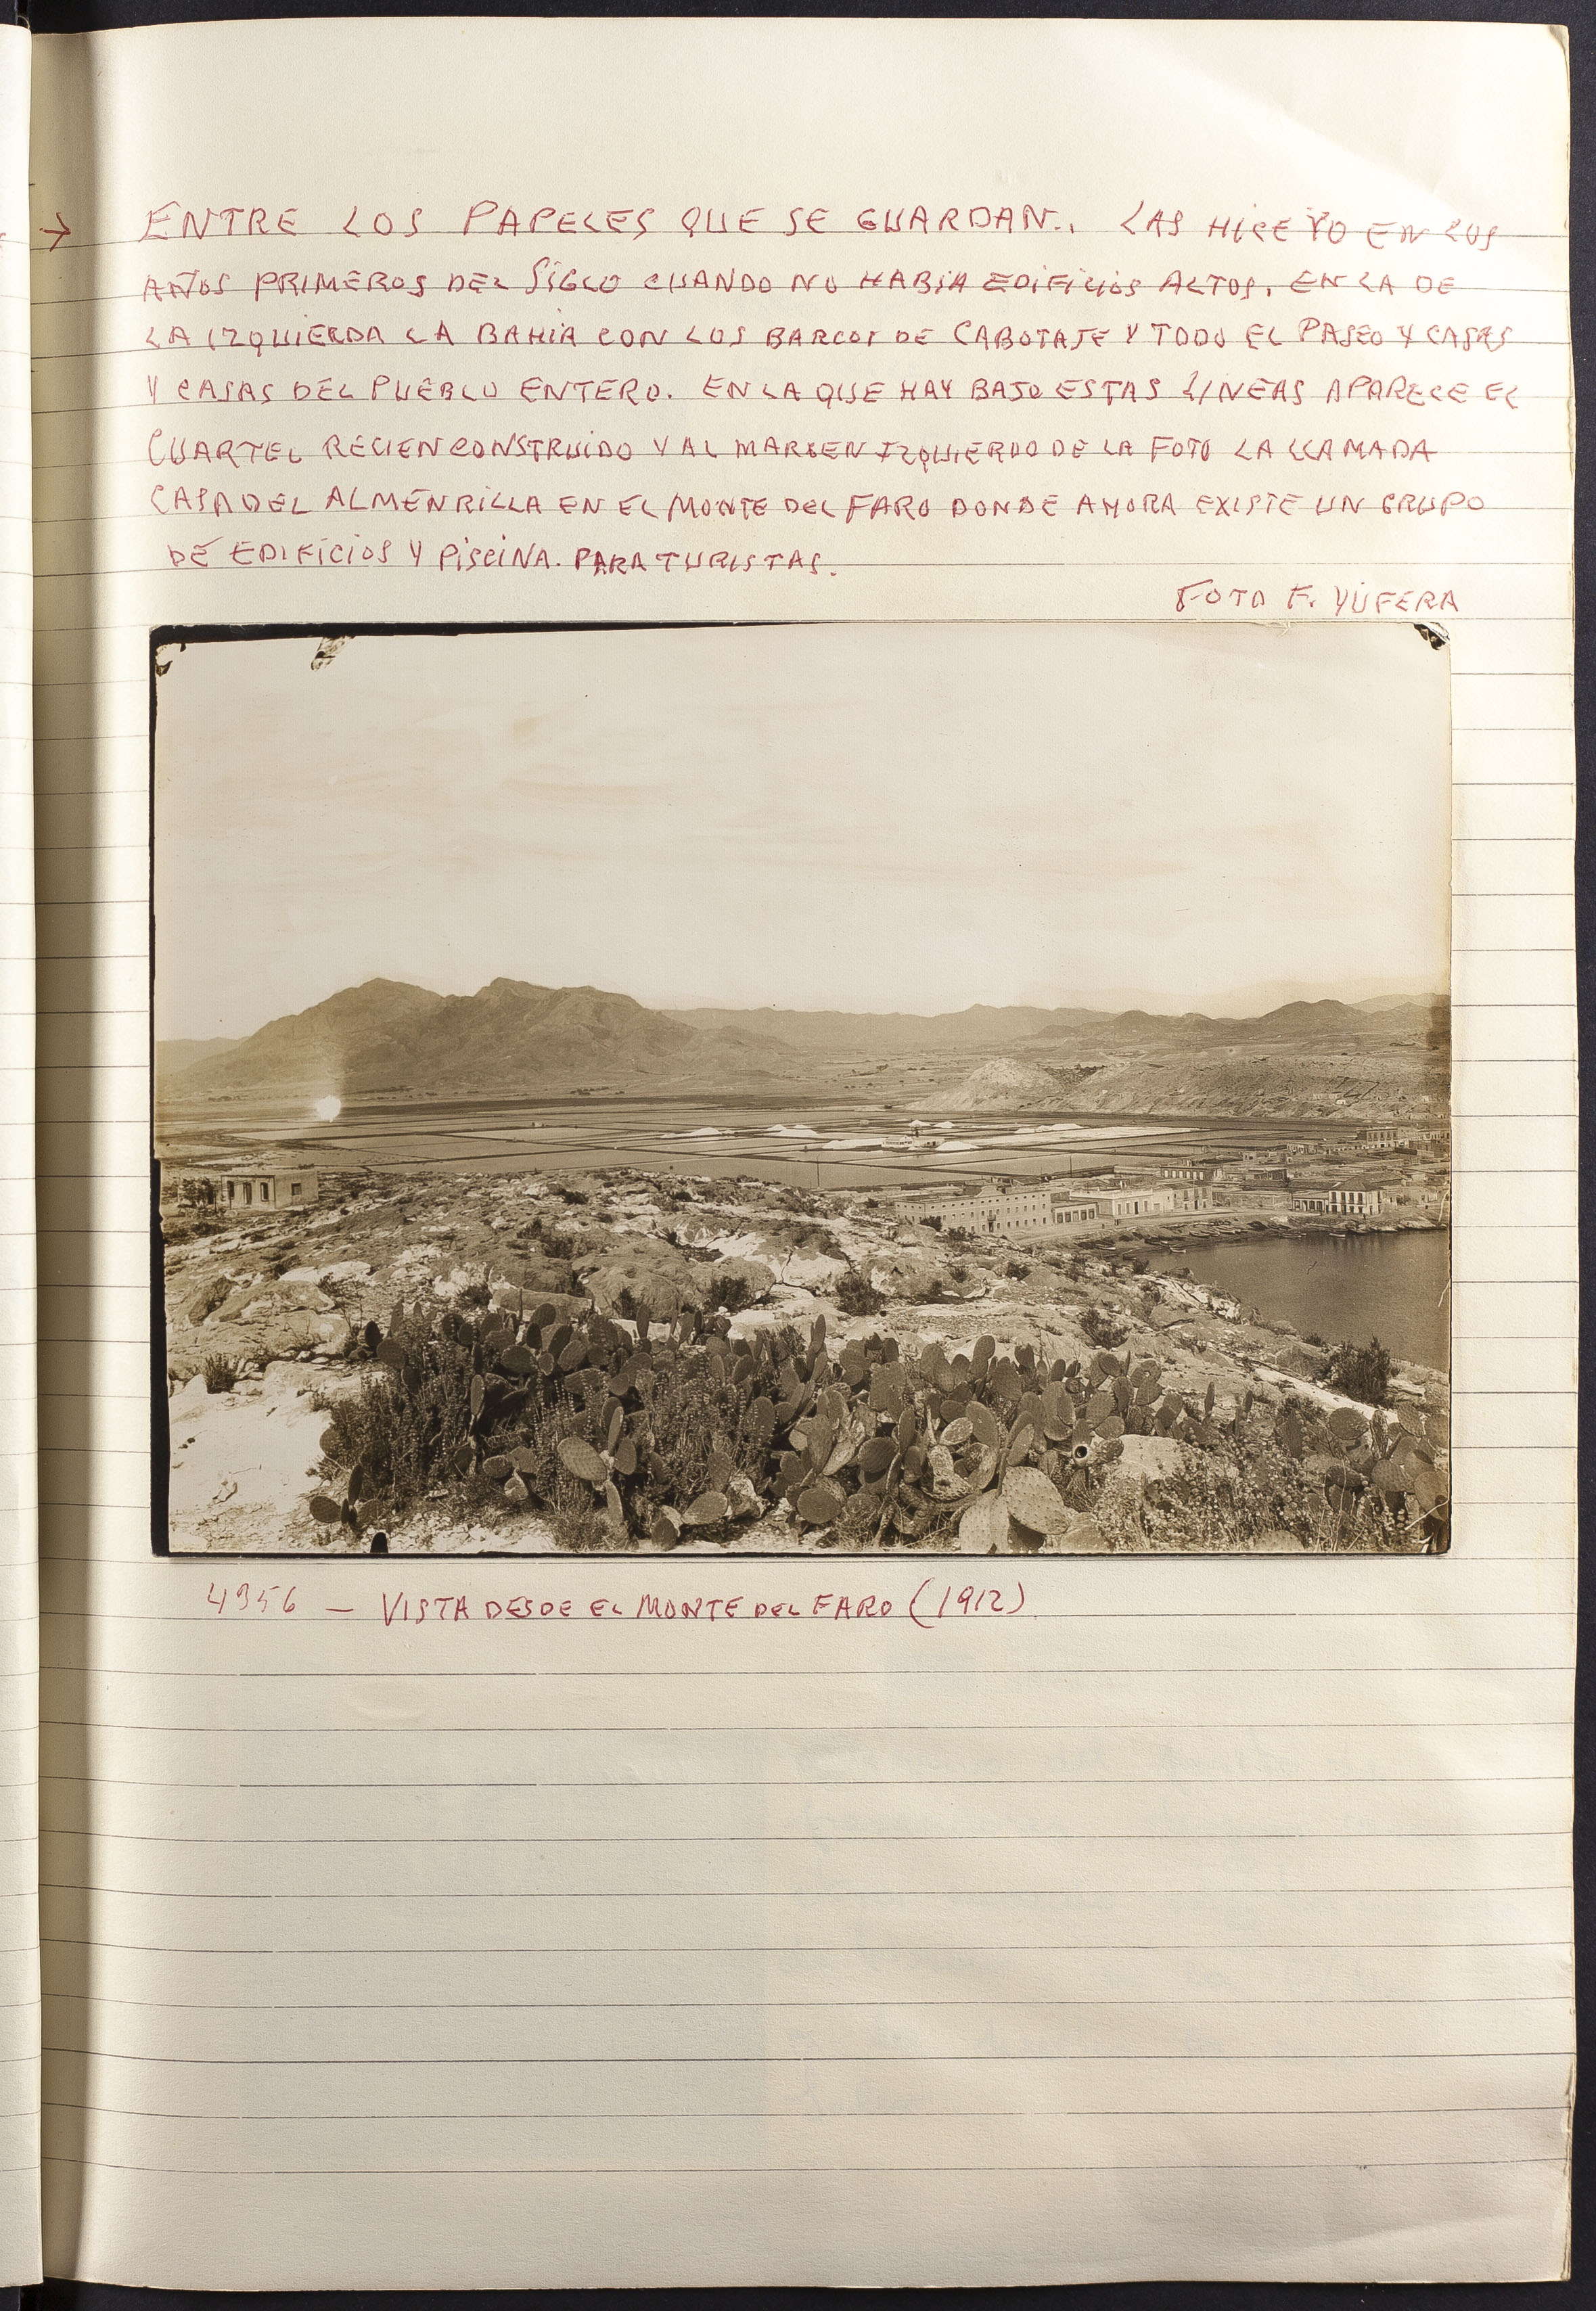 → ENTRE LOS PAPELES QUE SE GUARDAN.. LAS HICE YO EN LOS
AÑOS PRIMEROS DEL SIGLO CUANDO NO HABIA EDIFICIOS ALTOS. EN LA DE
LA IZQUIERDA LA BAHIA CON LOS BARCOS DE CABOTAJE Y TODO EL PASEO Y CASAS
Y CASAS DEL PUEBLO ENTERO. EN LA QUE HAY BAJO ESTAS LINEAS APARECE EL
CUARTEL RECIEN CONSTRUIDO Y AL MARGEN IZQUIERDO DE LA FOTO LA LLAMADA
CASA DEL ALMENRILLA EN EL MONTE DEL FARO DONDE AHORA EXISTE UN GRUPO
DE EDIFICIOS Y PISCINA. PARA TURISTAS.
FOTO F. YÚFERA
4956 — VISTA DESDE EL MONTE DEL FARO (1912)